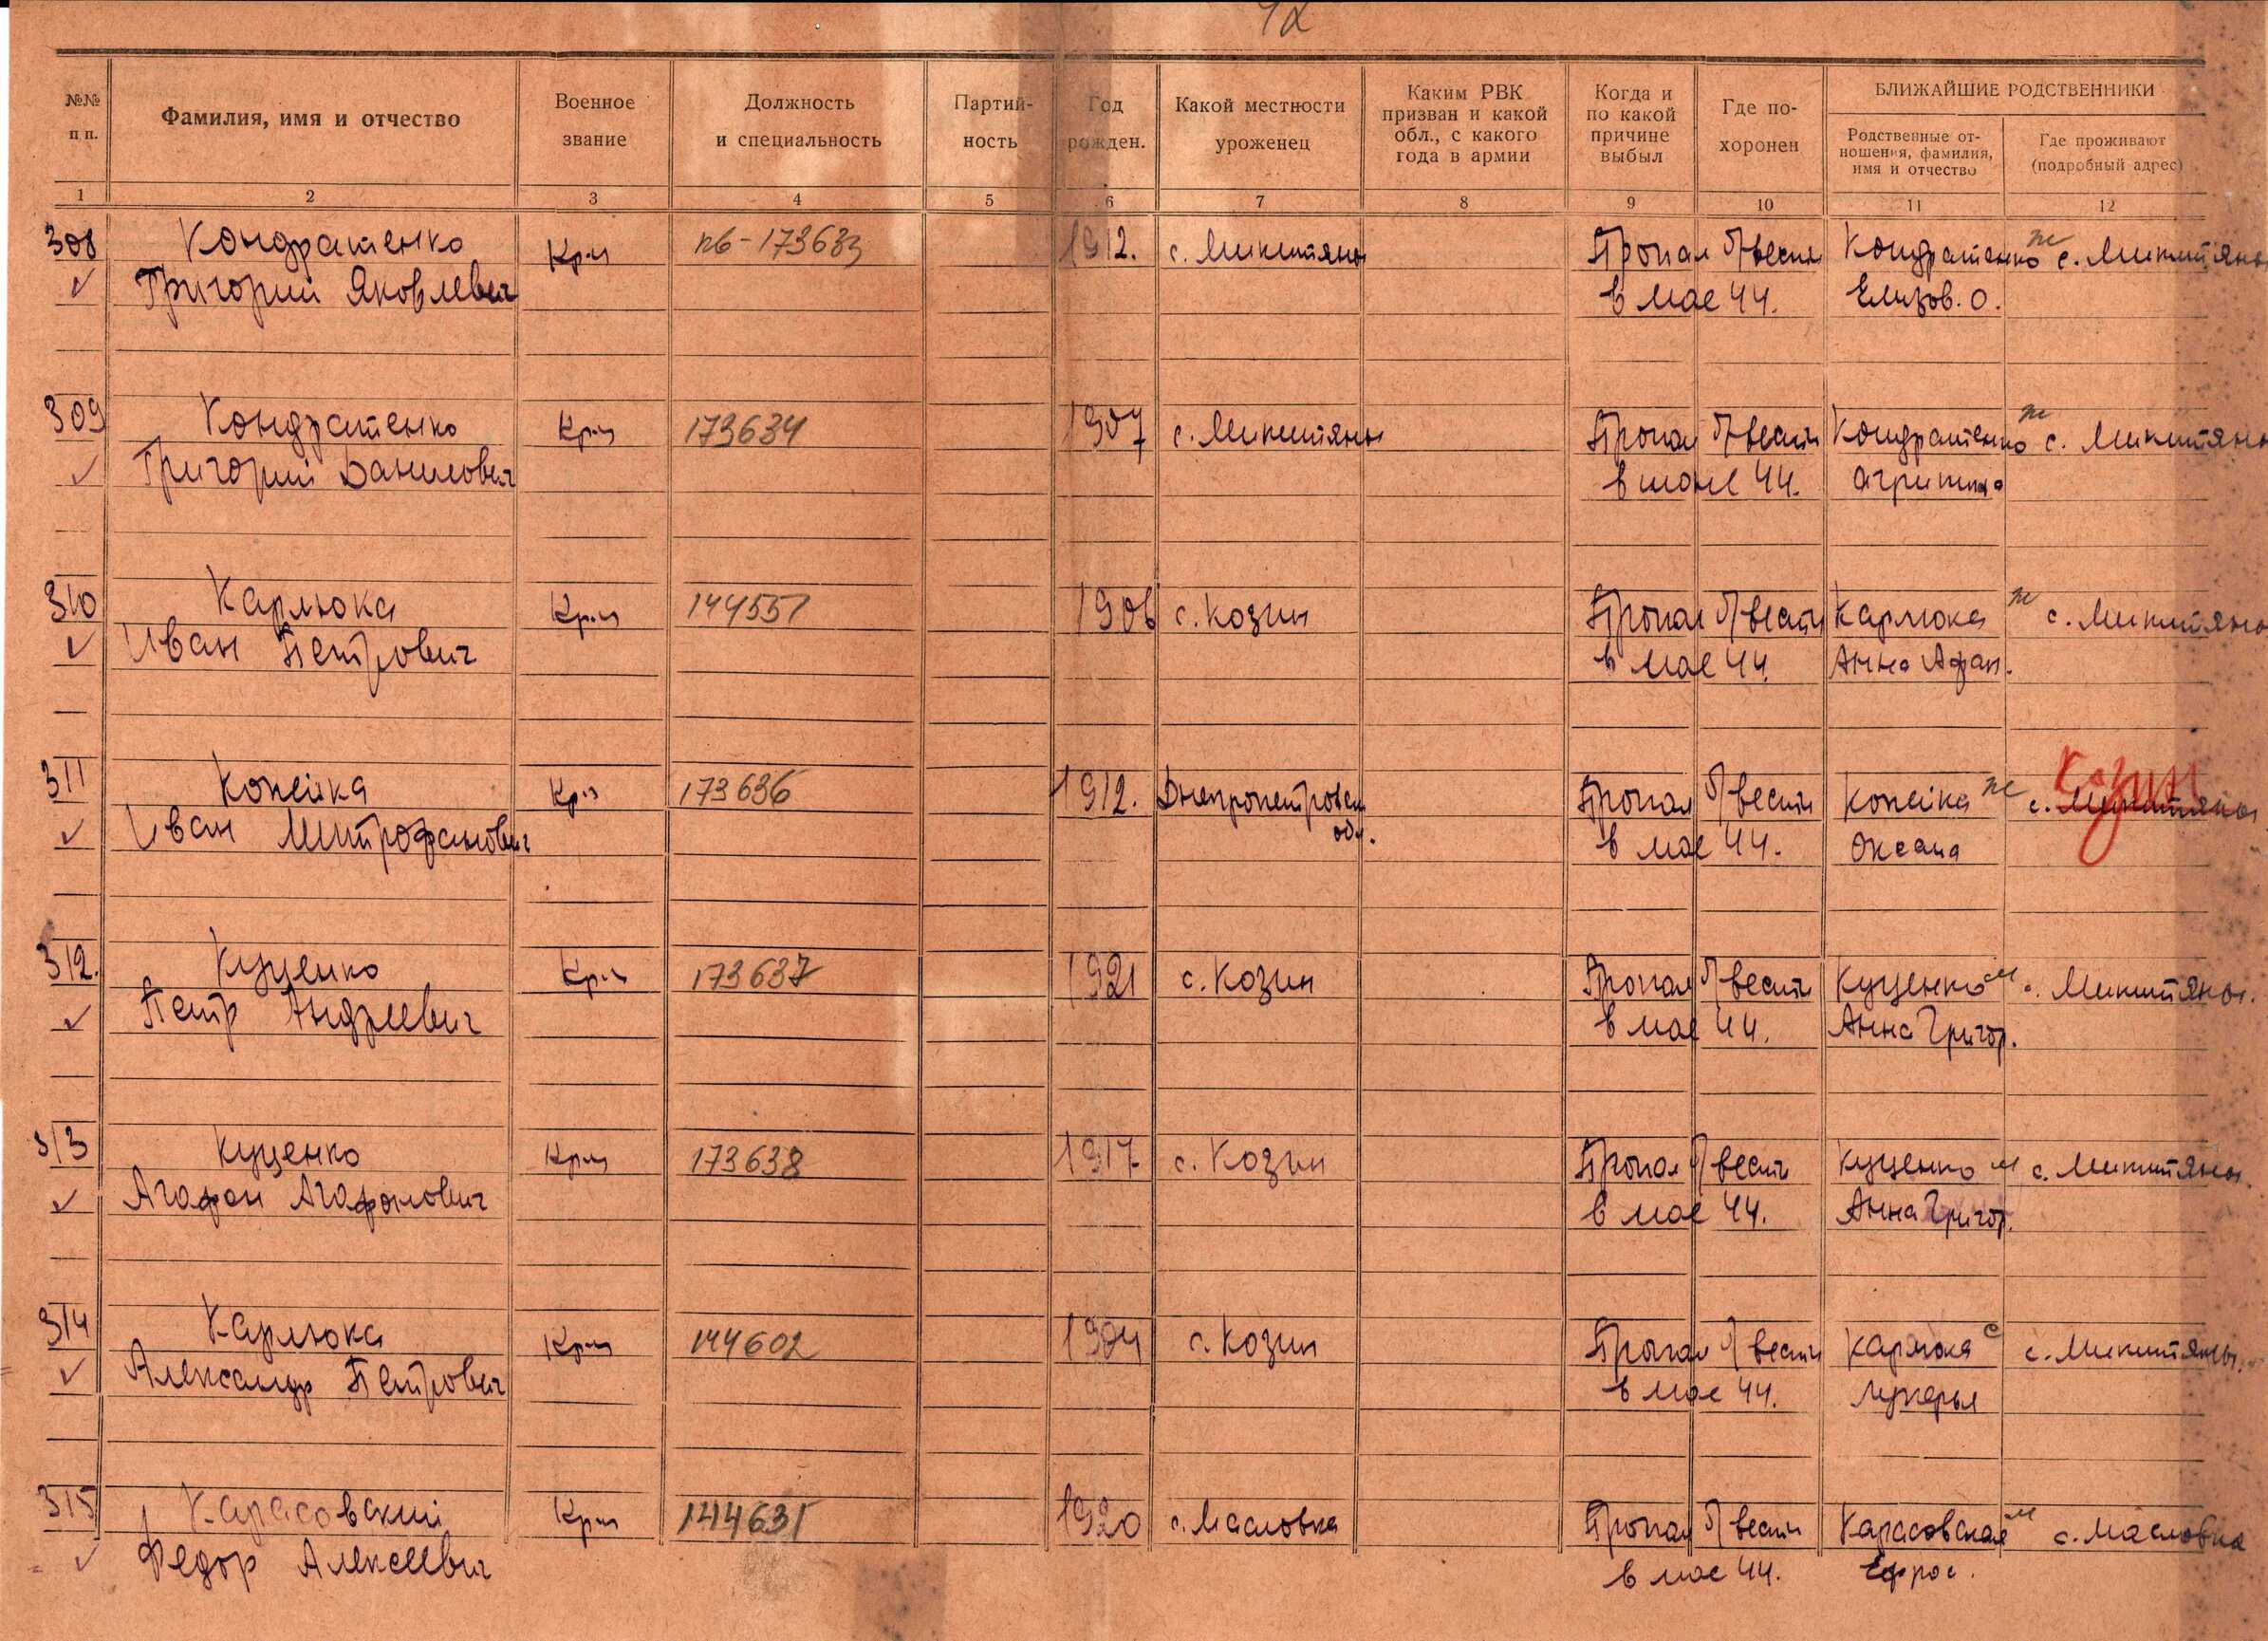 42
№№ п п.
Фамилия, имя и отчество
Военное звание
Должность и специальность
Партий-ность
Год рожден.
Какой местности уроженец
Каким РВК призван и какой обл., с какого года в армии
Когда и по какой причине выбыл
Где по-хоронен
БЛИЖАЙШИЕ РОДСТВЕННИКИ
Родственные от-ношения, фамилия, имя и отчество
Где проживают (подробный адрес)
1 2 3 4 5 6 7 8 9 10 11 12
308 Кондратенко Кр-ц пб-173633 1912. с. Микитяны Пропал б/вести Кондратенко ж с. Микитяны
Григорий Яковлевич в мае 44. Елизов. О.
309 Кондратенко Кр-ц 173634 1907 с. Микитяны Пропал б/вести Кондратенко ж с. Микитяны
Григорий Данилович в июне 44. Агрипина
310 Карлюка Кр-ц 144551 1906 с. Козин Пропал б/вести Карлюка ж с. Микитяны
Иван Петрович в мае 44. Анна Афан.
311 Копейка Кр-ц 173636 1912. Днепропетровск Пропал б/вести Копейка ж с. Микитяны Козин
Иван Митрофанович обл. в мае 44. Оксана
312. Куценко Кр-ц 173637 1921 с. Козин Пропал б/вести Куценко м с. Микитяны.
Петр Андреевич в мае 44. Анна Григор.
313 Куценко Кр-ц 173638 1917 с. Козин Пропал б/вести Куценко м с. Микитяны.
Агафон Агафонович в мае 44. Анна Григор.
314 Карлюка Кр-ц 144602 1904 с. Козин Пропал б/вести Карлюка с с. Микитяны.
Александр Петрович в мае 44. Лукерья
315 Карасовский Кр-ц 144631 1920 с. Масловка Пропал б/вести Карасовская м с. Масловка
Федор Алексеевич в мае 44. Ефрос.